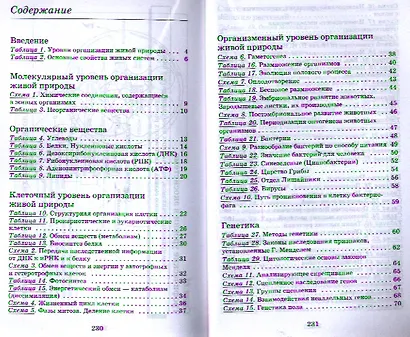 Содержание
Введение
Таблица 1. Уровни организации живой природы 4
Таблица 2. Основные свойства живых систем 6
Молекулярный уровень организации
живой природы
Схема 1. Химические соединения, содержащиеся
в живых организмах 9
Таблица 3. Неорганические вещества 10
Органические вещества
Таблица 4. Углеводы 13
Таблица 5. Белки, Нуклеиновые кислоты 14
Таблица 6. Дезоксирибонуклеиновая кислота (ДНК) 16
Таблица 7. Рибонуклеиновая кислота (РНК) 17
Таблица 8. Аденозинтрифосфорная кислота (АТФ) 19
Таблица 9. Липиды 20
Клеточный уровень организации
живой природы
Таблица 10. Структурная организация клетки 22
Таблица 11. Прокариотические и эукариотические
клетки 26
Таблица 12. Обмен веществ (метаболизм) 27
Таблица 13. Биосинтез белка 30
Схема 2. Передача наследственной информации
от ДНК к РНК и к белку 31
Схема 3. Обмен веществ и энергии у автотрофных
и гетеротрофных клеток 32
Таблица 14. Фотосинтез 33
Таблица 15. Энергетический обмен — катаболизм
(диссимиляция) 34
Схема 4. Жизненный цикл клетки 36
Схема 5. Фазы митоза. Деление клетки 37
230
Организменный уровень организации
живой природы
Схема 6. Гаметогенез 38
Таблица 16. Размножение организмов 40
Таблица 17. Эволюция полового процесса 42
Схема 7. Оплодотворение 43
Таблица 18. Бесполое размножение 44
Таблица 19. Эмбриональное развитие животных.
Зародышевые листки, их производные 45
Схема 8. Постэмбриональное развитие животных 46
Таблица 20. Периодизация онтогенеза животных
организмов 47
Таблица 21. Бактерии 48
Схема 9. Разнообразие бактерий по способу питания 49
Таблица 22. Значение бактерий для человека 50
Таблица 23. Синезеленые (Цианобактерии) 52
Таблица 24. Царство Грибы 54
Таблица 25. Отдел Лишайники 56
Таблица 26. Вирусы 58
Схема 10. Путь проникновения в клетку бактерио-
фага 59
Генетика
Таблица 27. Методы генетики 60
Таблица 28. Законы наследования признаков,
установленные Г. Менделем 62
Таблица 29. Цитологические основы законов
Менделя 64
Схема 11. Анализирующее скрещивание 65
Схема 12. Сцепленное наследование генов 66
Схема 13. Группы сцепления 67
Схема 14. Взаимодействия неаллельных генов 68
Схема 15. Генетика пола 70
231